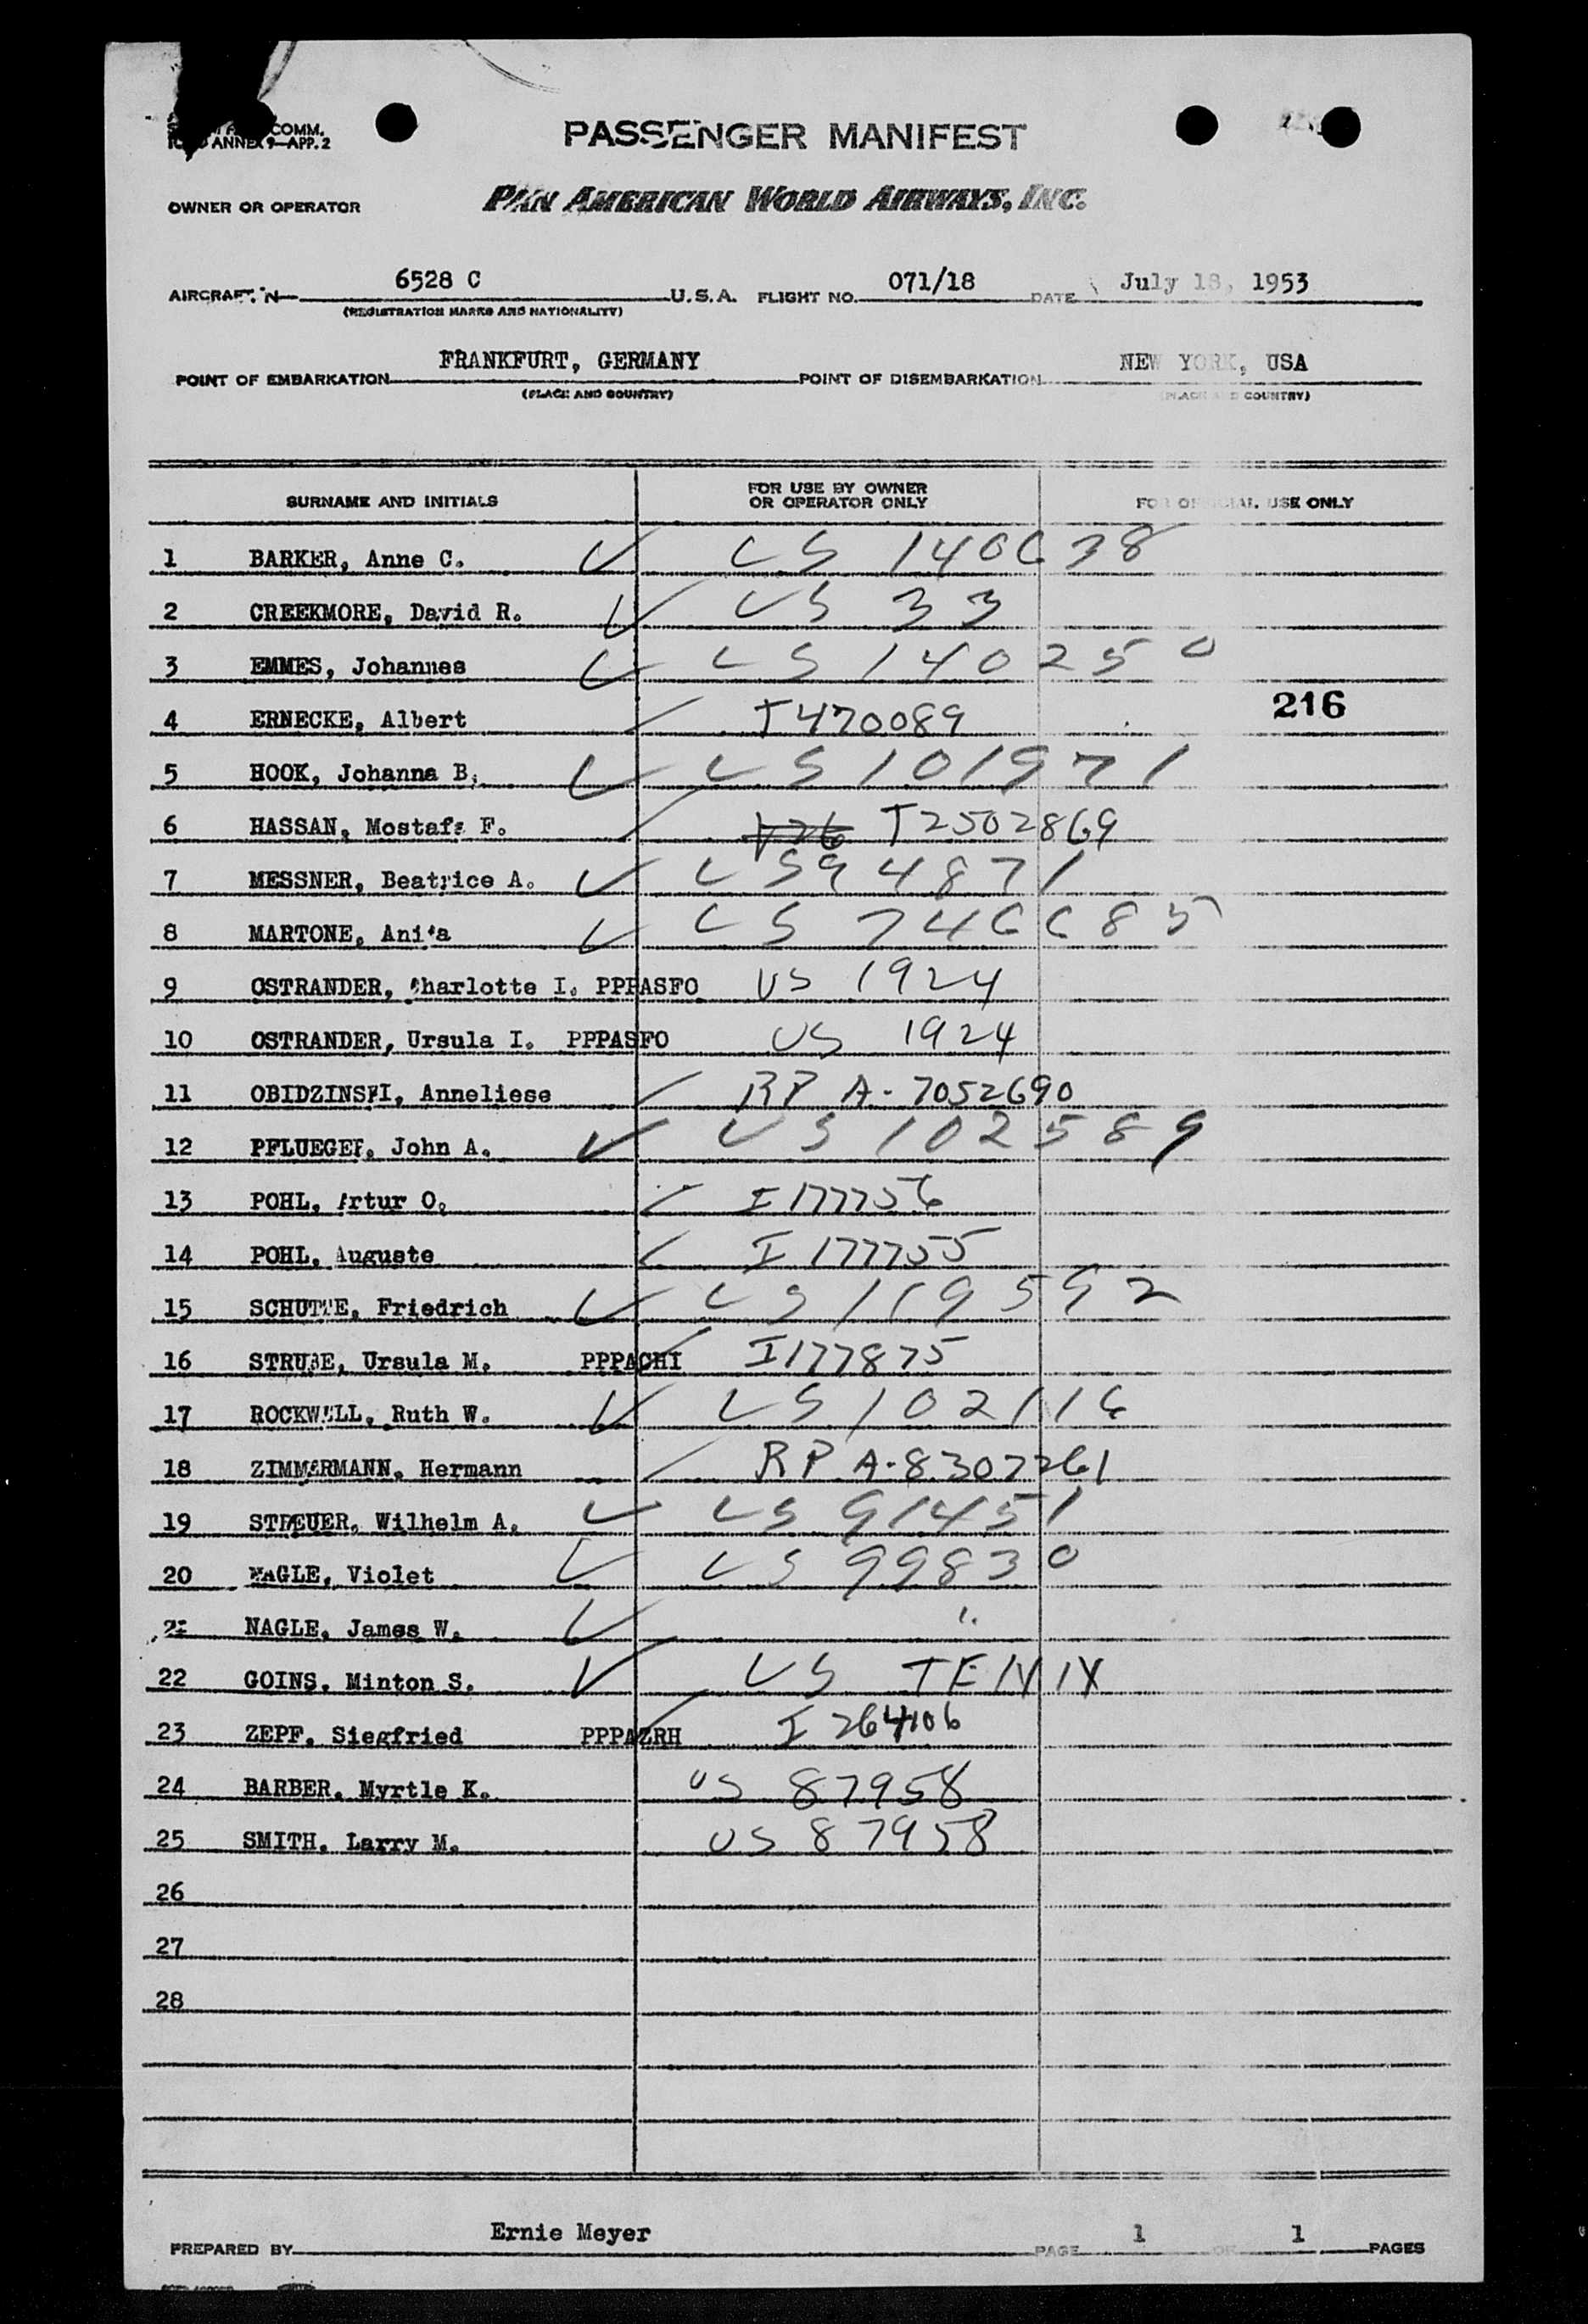 COMM.
ANNEX 9—APP. 2
PASSENGER MANIFEST
OWNER OR OPERATOR PAN AMERICAN WORLD AIRWAYS, INC.
AIRCRAFT N 6528 C U.S.A. FLIGHT NO. 071/18 DATE July 18, 1953
(REGISTRATION MARKS AND NATIONALITY)
POINT OF EMBARKATION FRANKFURT, GERMANY POINT OF DISEMBARKATION NEW YORK, USA
(PLACE AND COUNTRY) (PLACE AND COUNTRY)
SURNAME AND INITIALS FOR USE BY OWNER OR OPERATOR ONLY FOR OFFICIAL USE ONLY
1 BARKER, Anne C. ✓ US 140638
2 CREEKMORE, David R. ✓ US 33
3 EMMES, Johannes ✓ US 140250
4 ERNECKE, Albert ✓ T470089 216
5 HOOK, Johanna B. ✓ US 101971
6 HASSAN, Mostafa F. ✓ T2502869
7 MESSNER, Beatrice A. ✓ US 94871
8 MARTONE, Anita ✓ US 746685
9 OSTRANDER, Charlotte I. PPPASFO US 1924
10 OSTRANDER, Ursula I. PPPASFO US 1924
11 OBIDZINSKI, Anneliese ✓ RP A-7052690
12 PFLUEGER, John A. ✓ US 102589
13 POHL, Artur O. ✓ I 177756
14 POHL, Auguste ✓ I 177755
15 SCHUTTE, Friedrich ✓ US 119592
16 STRUBE, Ursula M. PPPACHI I177875
17 ROCKWELL, Ruth W. ✓ US 102116
18 ZIMMERMANN, Hermann ✓ RP A-8307261
19 STREUER, Wilhelm A. ✓ US 91451
20 NAGLE, Violet ✓ US 99830
21 NAGLE, James W. ✓ "
22 GOINS, Minton S. ✓ US
23 ZEPF, Siegfried PPPAZRH I 264106
24 BARBER, Myrtle K. US 87958
25 SMITH, Larry M. US 87958
26
27
28
PREPARED BY Ernie Meyer PAGE 1 OF 1 PAGES